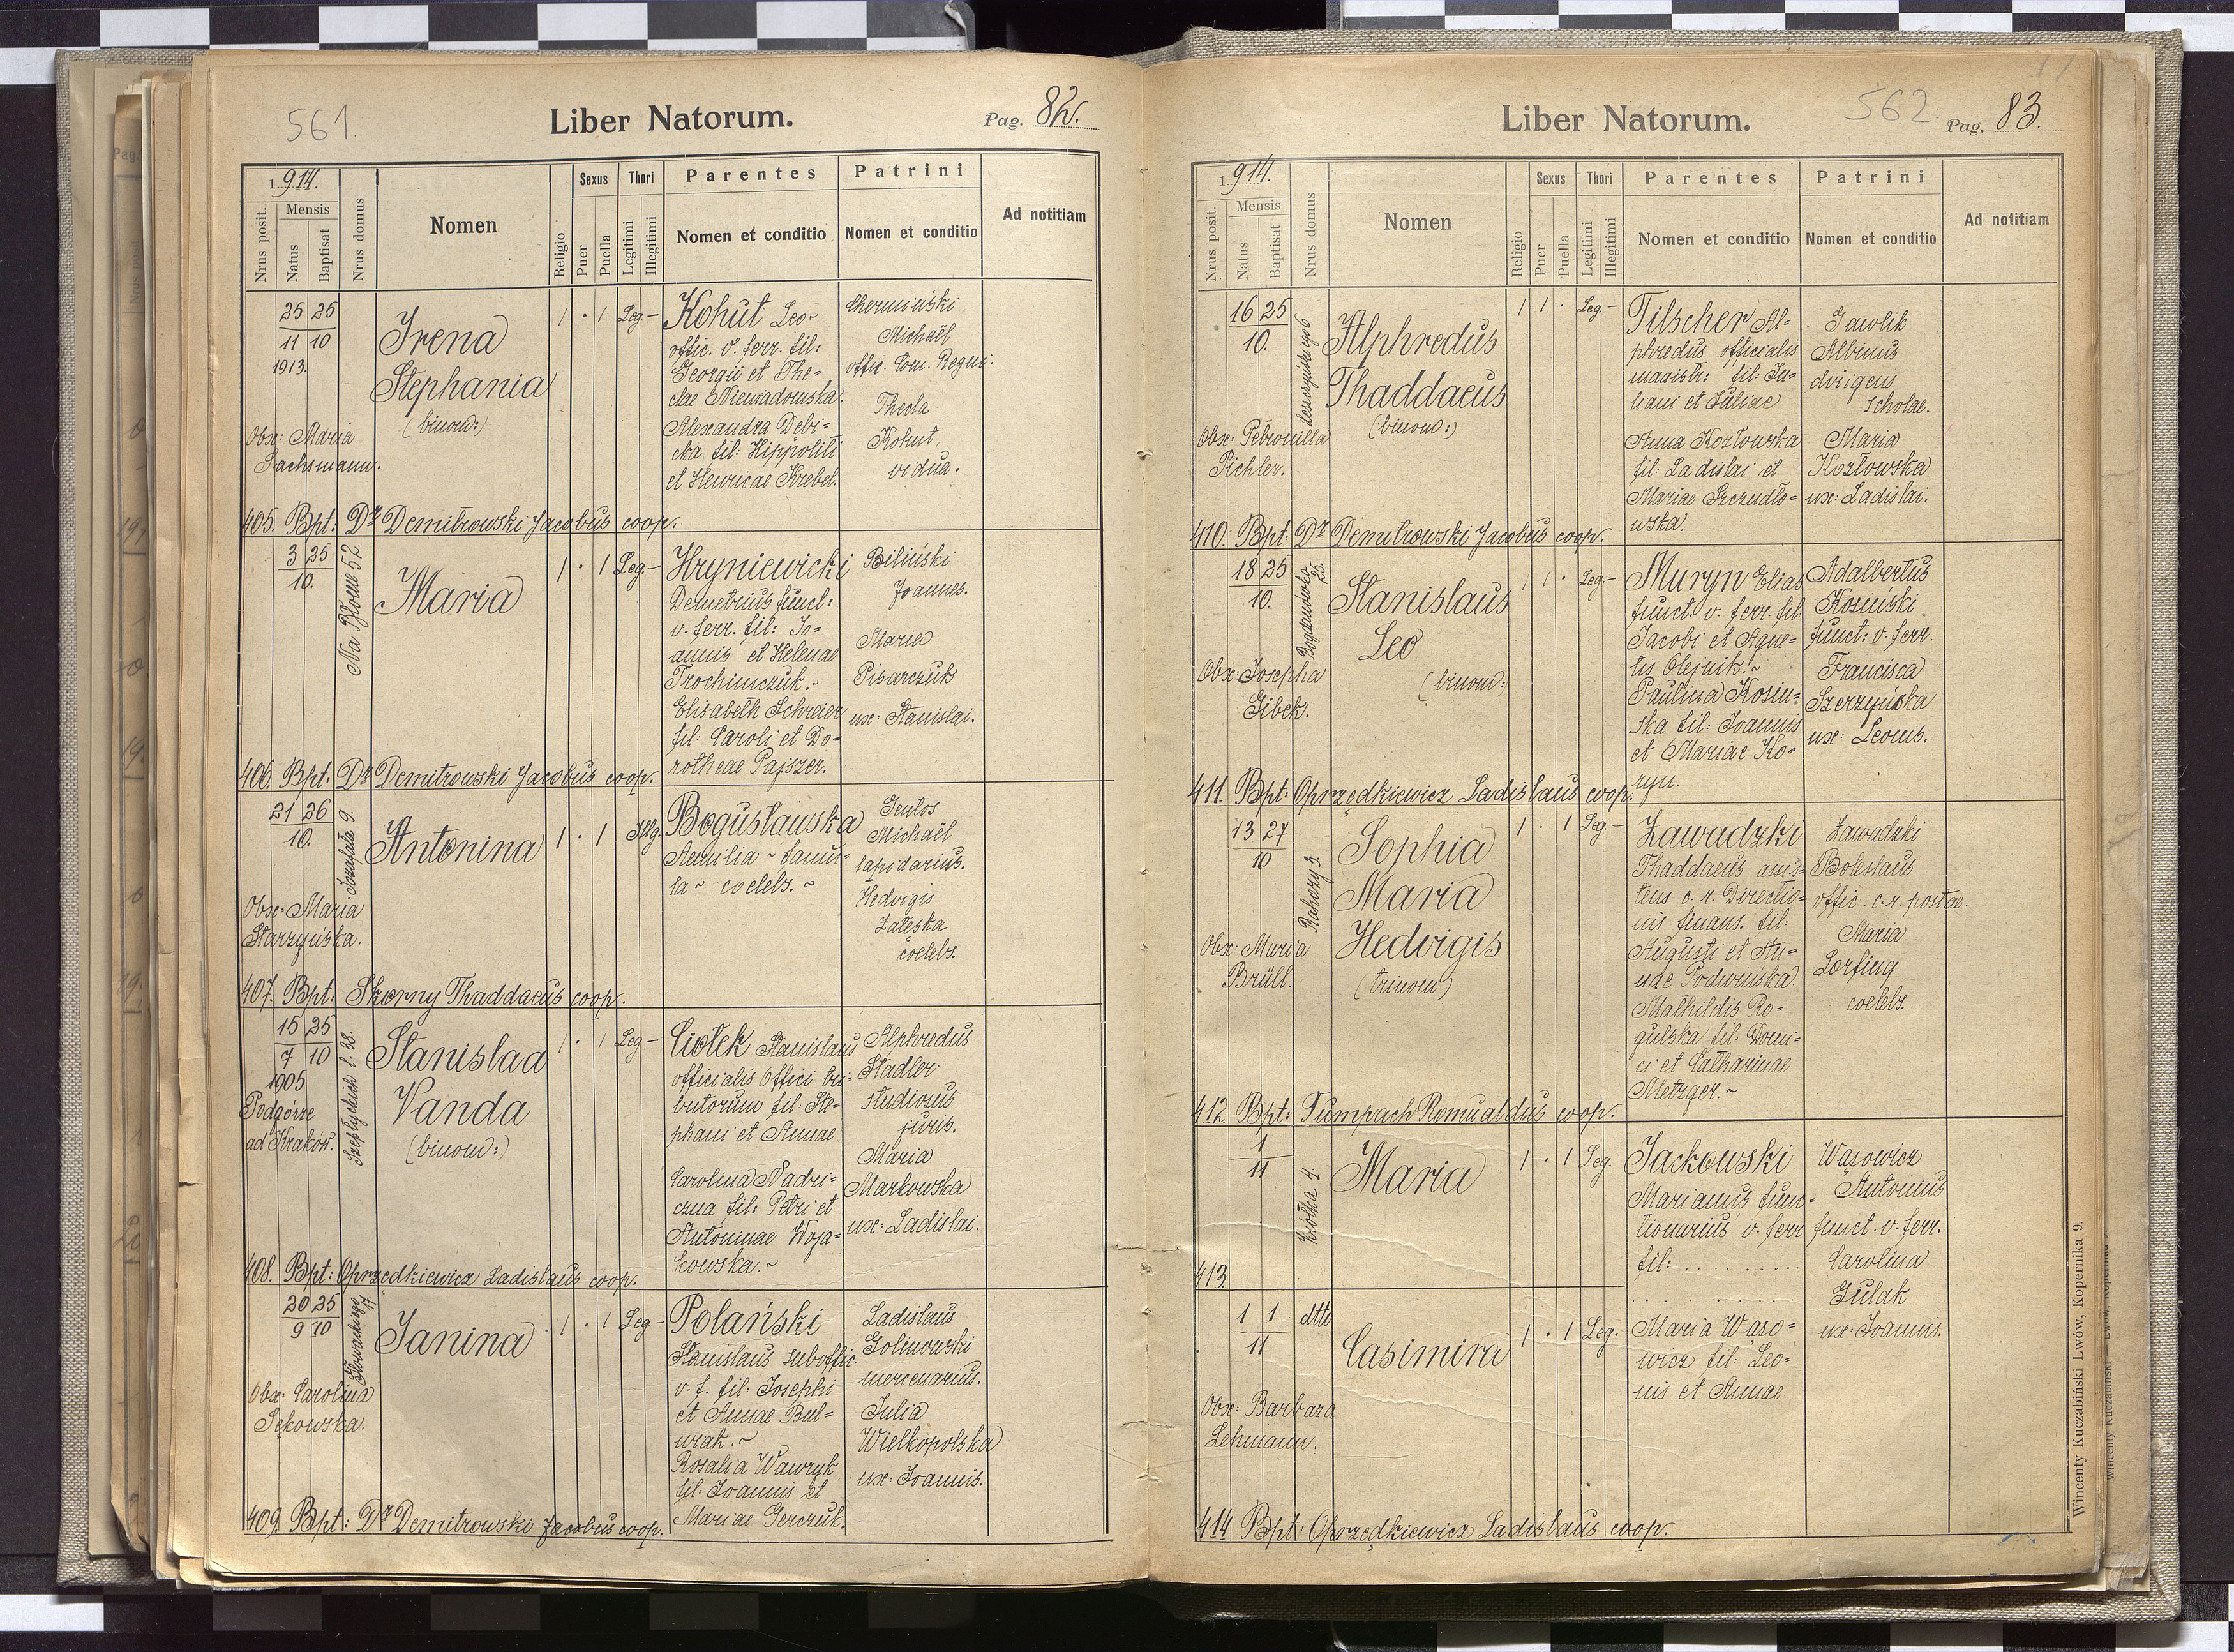 561.
Liber Natorum.
Pag. 82.
1914.
Nrus posit.
Mensis
Natus
Baptisat
Nrus domus
Nomen
Religio
Sexus
Puer
Puella
Thori
Legitimi
Illegitimi
Parentes
Nomen et conditio
Patrini
Nomen et conditio
Ad notitiam
25 25
11 10
1913.
Irena
Stephania
(binom:)
1 · 1 Leg-
Kohut Leo-
offic. v. ferr. fil:
Georgii et The-
clae Niewiadomska.
Alexandra Debi-
cka fil: Hippoliti
et Henricae Krebel.
Michaël
offic. Com. Regni.
Thecla
Kohut,
vidua.
Obx: Maria
Sachsmann.
405. Bpt: Dr Demitrowski Jacobus coop.
3 25
10.
Na Błonie 52.
Maria
1 · 1 Leg-
Hryniewicki
Demetrius funct:
v. ferr. fil: Jo-
annis et Helenae
Trochimczuk.-
Elisabeth Schreier
fil: Caroli et Do-
rotheae Pajszer.
Biliński
Joannes.
Maria
Pisarczuk
ux: Stanislai.
406. Bpt: Dr Demitrowski Jacobus coop.
21 26
10.
Jozafata 9.
Antonina
1 · 1 Illg.
Bogusławska
Aemilia - famu-
la - coelebs. ~
Gentos
Michaël
lapidarius.
Hedvigis
Zaleska
coelebs.
Obx: Maria
Starzyńska.
407. Bpt: Skorny Thaddaeus coop.
15 25
7 10
1905
Podgórze
ad Kraków.
Szeptyckich l. 38.
Stanislaa
Vanda
(binom:)
1 · 1 Leg-
Ciołek Stanislaus
officialis Offici tri-
butorum fil: Ste-
phani et Annae
Carolina Nadri-
czna fil: Petri et
Antoninae Woja-
kowska.~
Alphredus
Stadler
studiosus
juris.
Maria
Markowska
ux: Ladislai.
408. Bpt: Oprzędkiewicz Ladislaus coop.
20 25
9 10
Słowackiego 17
Janina
1 · 1 Leg-
Polański
Stanislaus suboffic.
v. f. fil: Josephi
et Annae Bul-
wak.~
Rosalia Wawryk
fil: Joannis et
Mariae Gerczuk.
Ladislaus
Golinowski
mercenarius.
Julia
Wielkopolska
ux: Joannis.
Obx: Carolina
Sękowska.
409. Bpt: Dr Demitrowski Jacobus coop.
Liber Natorum.
562.
Pag. 83.
1914.
Nrus posit.
Mensis
Natus
Baptisat
Nrus domus
Nomen
Religio
Sexus
Puer
Puella
Thori
Legitimi
Illegitimi
Parentes
Nomen et conditio
Patrini
Nomen et conditio
Ad notitiam
16 25
10.
Alphredus
Thaddaeus
(binom:)
1 1 · Leg-
Tilscher Al-
phredus officialis
magistr: fil: Ju-
liani et Juliae
Anna Kozłowska
fil: Ladislai et
Mariae Szczudło-
wska.
Gawlik
Albinus
dirigens
scholae.
Maria
Kozłowska
ux: Ladislai.
Obx: Petronilla
Pichler.
410. Bpt: Dr Demitrowski Jacobus coop.
18 25
10.
Bogdanówka 25.
Stanislaus
Leo
(binom:
1 1 · Leg-
Muryn Elias
funct. v. ferr. fil.
Jacobi et Agne-
tis Olejnik.~
Paulina Kosin-
ska fil: Joannis
et Mariae Ko-
ryn.
Adalbertus
Kosinski
funct: v. ferr.
Francisca
Szerzyńska
ux: Leonis.
Obx: Josepha
Gibek.
411. Bpt: Oprzędkiewicz Ladislaus coop.
13 27
10
Rahozy 3.
Sophia
Maria
Hedvigis
(trinom)
1 · 1 Leg-
Zawadzki
Thaddaeus assis-
tens c. r. Directio-
nis finans. fil:
Augusti et An-
nae Podwinska.
Mathildis Ro-
gulska fil: Domi-
ci et Catharinae
Metzger.~
Zawadzki
Boleslaus
offic. c. r. postae.
Maria
Lorfing
coelebs.
Obx: Maria
Brüll.
412. Bpt: Tumpach Romualdus coop.
1
11
Maria
1 · 1 Leg.
Jackowski
Marianus func-
tionarius v. ferr
fil: . . . . . . . . .
Wąsowicz
Antonius
funct. v. ferr.
Carolina
Gulak
ux: Joannis.
413.
1 1
11
dtto
Casimira
1 · 1 Leg.
Maria Wąso-
wicz fil: Leo-
nis et Annae
Obx: Barbara
Lehmann.
414. Bpt: Oprzędkiewicz Ladislaus coop.
Wincenty Kuczabiński Lwów, Kopernika 9.